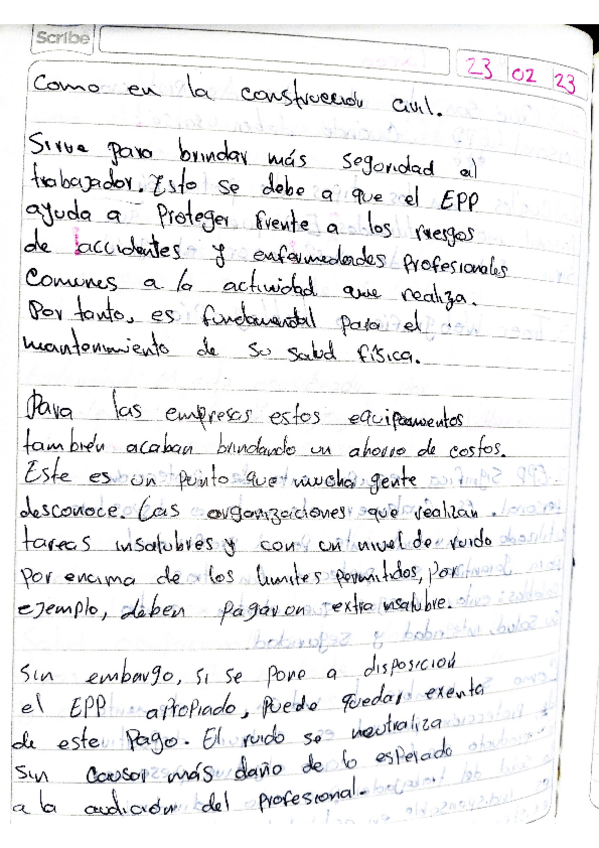 Scribe
23 02 23
Como en la construcción civil.
Sirve para brindar más seguridad al
trabajador. Esto se debe a que el EPP
ayuda a Proteger frente a los riesgos
de accidentes y enfermedades profesionales
Comunes a la actividad que realiza.
Por tanto, es fundamental para el
mantenimiento de su salud física.
Para las empresas estos equipamentos
también acaban brindando un ahorro de costos.
Este es un punto que mucha gente
desconoce. Las organizaciones que realizan
tareas insalubres y con un nivel de ruido
por encima de los limites permitidos, por
ejemplo, deben pagar un extra insalubre.
Sin embargo, si se pone a disposicion
el EPP apropiado, puede quedar exenta
de este pago. El ruido se neutraliza
sin causar más daño de lo esperado
a la audición del profesional.